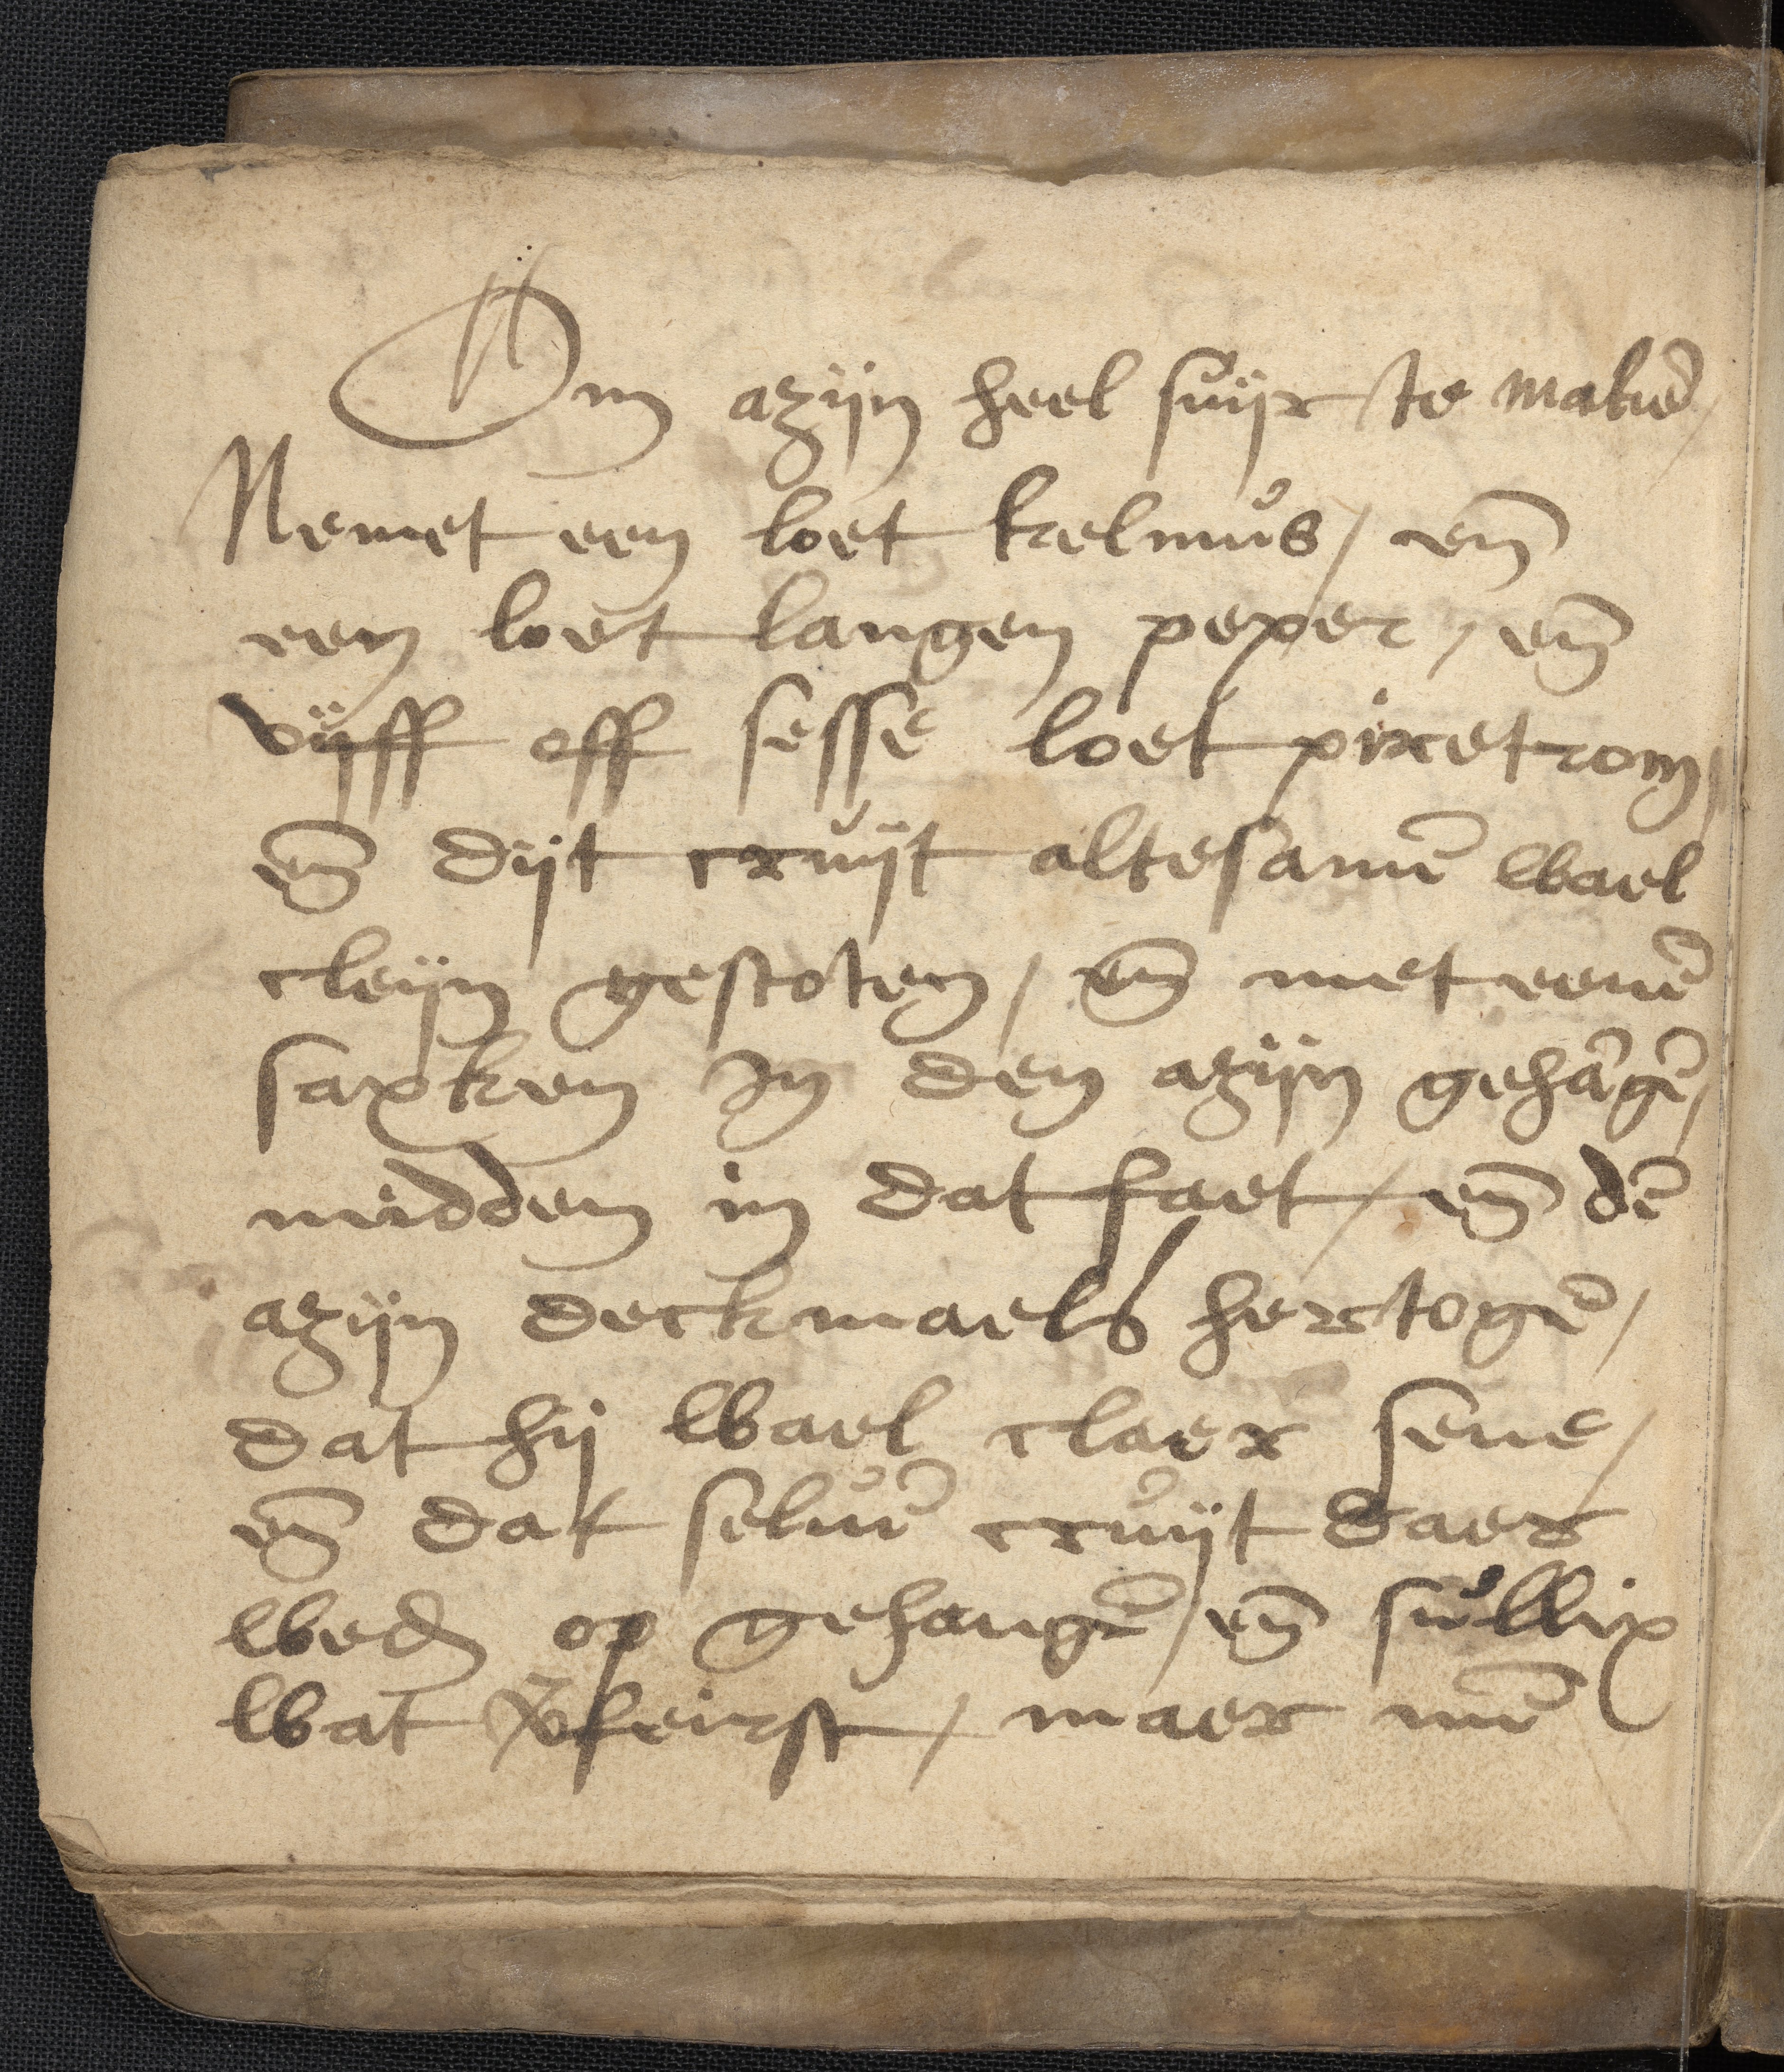 Om azijn heel suijr te maken̄ /
Nemet een loet kelmus / en̄
een loet langen peper / en̄
vijff off sesse loet piretrom /
en̄ dijt cruijt altesamē wael
cleijn gestoten / en̄ met eenē
saxken in den azijn gehāgē /
midden in dat faet / en̄ dē
azijn deckmaels hertogē /
dat hij wael claer sene /
en̄ dat seluē cruijt daer
wed op gehangē / en̄ sullix
wat v̄feirst / maer mē